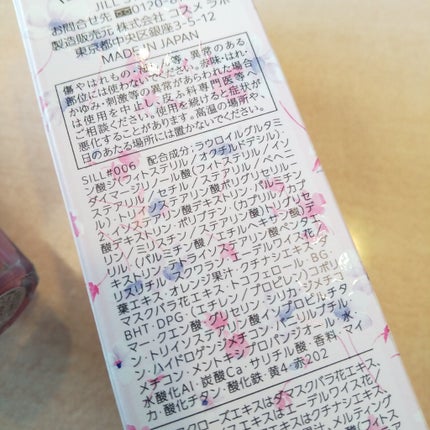 JILL
お問合せ先 0120-8
製造販売元 株式会社 コスメ ラボ
東京都中央区銀座3-5-12
MADE IN JAPAN
傷やはれもの・ 等、異常のある
部位には使わないでください。赤味・はれ・
かゆみ・刺激等の異常があらわれた場合
は使用を中止し、皮ふ科専門医等へ
ご相談ください。使用を続けると症状が
悪化することがあります。高温の場所や
日のあたる場所には置かないでください。
SILL#006 配合成分:ラウロイルグルタミ
ン酸ジ(フィトステリル/オクチルドデシル)・
ダイマージリノール酸(フィトステリル/イソ
ステアリル/セチル/ステアリル/ベヘニ
ル)・トリイソステアリン酸ポリグリセリル-
酸デキストリン・ポリブテン・(カプリル/カプリ
ン/ミリスチン/ステアリン酸)グリセリ
ル・(パルミチン酸/エチルヘキサン酸)デ
キストリン・テトライソステアリン酸ペンタエ
リスリチル・ エーデルワイス花/
葉エキス・オレンジ果汁・クチナシエキス・ダ
マスクバラ花エキス・トコフェロール・BG・
BHT・DPG・(エチレン/プロピレン)コポリ
マー・クエン酸・グリセリン・シリカ・ジメチコ
ン・トリイソステアリン酸
ン・ハイドロゲンジメチコン・
チコン・メントキシプロパンジオール・水・マイ
カ・水酸化Al・炭酸Ca・サリチル酸・香料
酸化チタン・酸化鉄・黄4・赤202
ローズエキスはダマスクバラ花エキス
エキスはエーデルワイス花/
エキスはクチナシエキス
メルティング